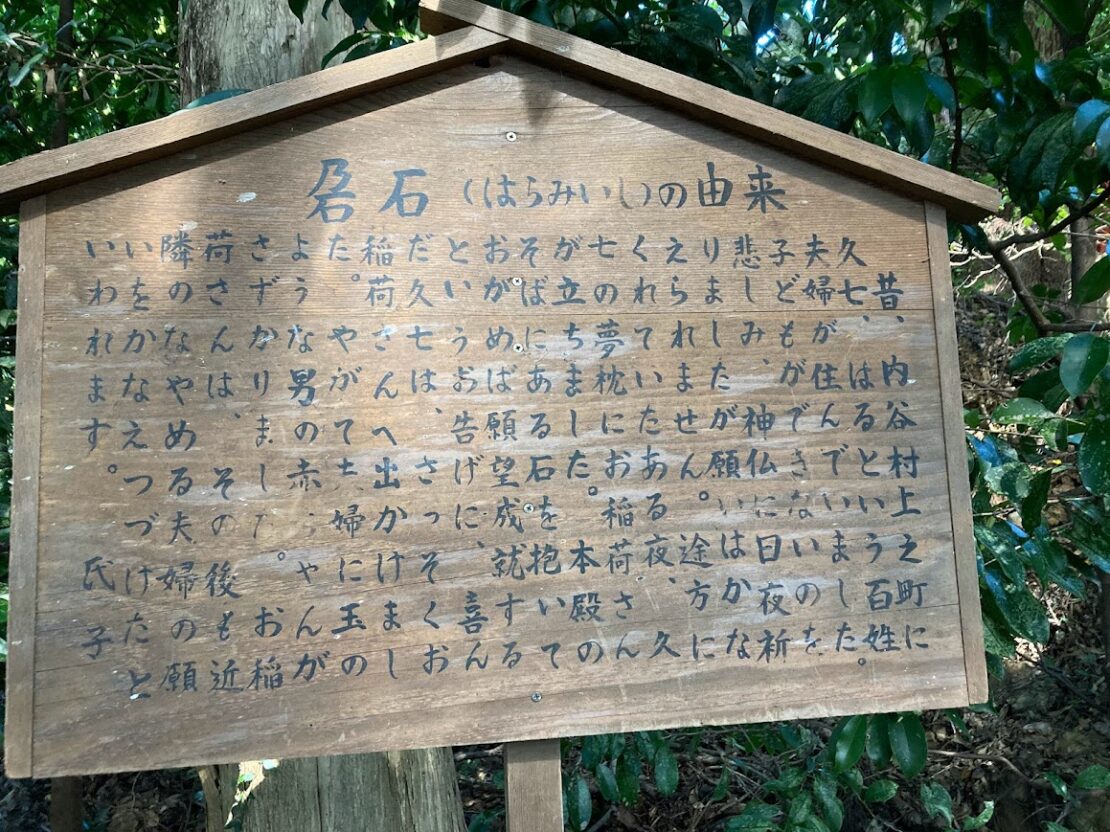 孕石（はらみいし）の由来
昔、内谷村上之町に
久七、はるという百姓
夫婦が住んでいました。
子どもができないのを
悲しみ、神仏に日夜祈
りましたが願いはかな
えられません。途方に
くれていたある夜、久
七の夢枕にお稲荷さん
が立ちました。本殿の
そばにある石を抱いて
おがめば願望成就する
というお告げに、喜ん
だ久七は、さっそくお
稲荷さんへ出かけまし
た。やがて夫婦に玉の
ような男の赤ちゃんが
さずかりました。お稲
荷さんは、その後も近
隣のなやめる夫婦の願
いをかなえつづけたと
いわれます。
氏子